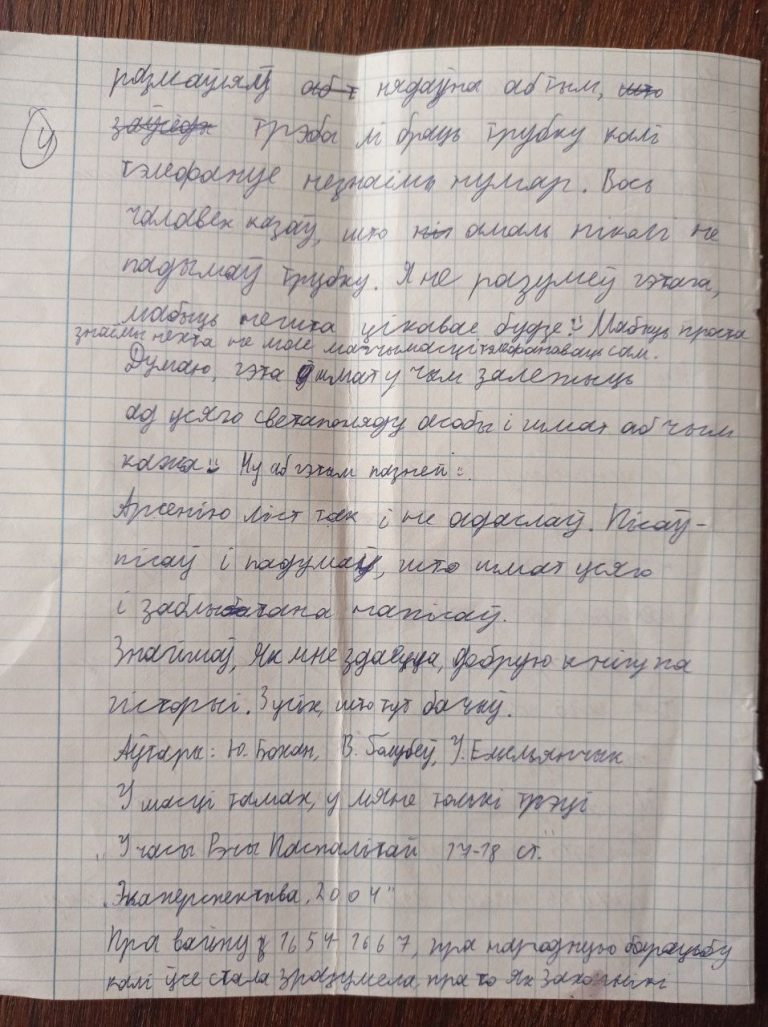 размаўляў аб т нядаўна аб тым, што
4
заўсёды трэба лі браць трубку калі
тэлефануе незнаёмы нумар. Вось
чалавек казаў, што ніл амаль ніколі не
падымаў трубку. Я не разумеў гэтага,
мабыць нешта цікавае будзе :) Мабыць проста
знаёмы нехта не мае магчымасці тэлефанаваць сам.
Думаю, гэта ў шмат у чым залежыць
ад усяго светапогляду асобы і шмат аб чым
кажа :) Ну аб гэтым пазней :).
Арсенію ліст так і не адаслаў. Пісаў-
пісаў і падумаў, што шмат усяго
і заблытана напісаў.
Знайшоў, як мне здаецца, добрую кнігу па
гісторыі. З усіх, што тут бачыў.
Аўтары: Ю. Бохан, В. Голубеў, У. Емельянчык
У шасці тамах, у мяне толькі трэці
"У часы Рэчы Паспалітай 17-18 ст."
"Экаперспектыва, 2004"
Пра вайну ў 1654-1667, пра народную барацьбу
калі ўсе стала зразумела, пра то як